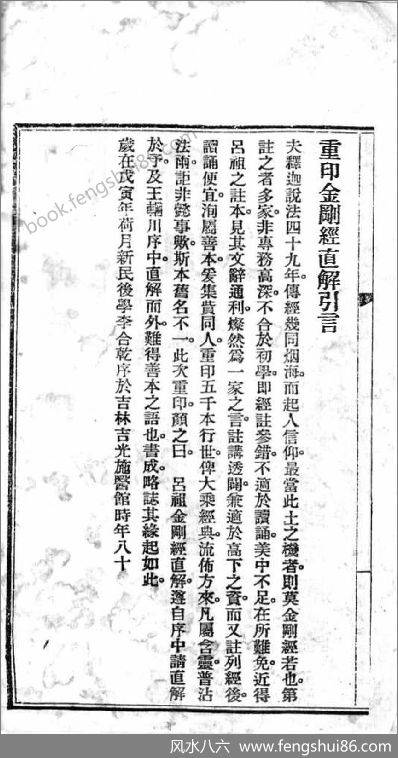 重印金剛經直解引言
夫釋迦說法四十九年。傳經幾同烟海。而起人信仰。最當此土之機者。則莫金剛經若也。第
註之者多家。非專務高深。不合於初學。即經註參錯。不適於讀誦。美中不足。在所難免。近得
呂祖之註本。見其文辭通利。燦然爲一家之言。註講透闢。兼適於高下之資。而又註列經後。
讀誦便宜。洵屬善本。爰集貲同人。重印五千本行世。俾大乘經典。流佈方來。凡屬含靈。普沾
法雨。詎非懿事歟。斯本舊名不一。此次重印。顏之曰 呂祖金剛經直解。蓬自序中請直解
於予。及王輞川序中。直解而外。難得善本之語也。書成略誌其緣起如此。
歲在戊寅年荷月新民後學李合乾序於吉林吉光施醫館時年八十
book.fengshui86.com
风水八六 - www.fengshui86.com